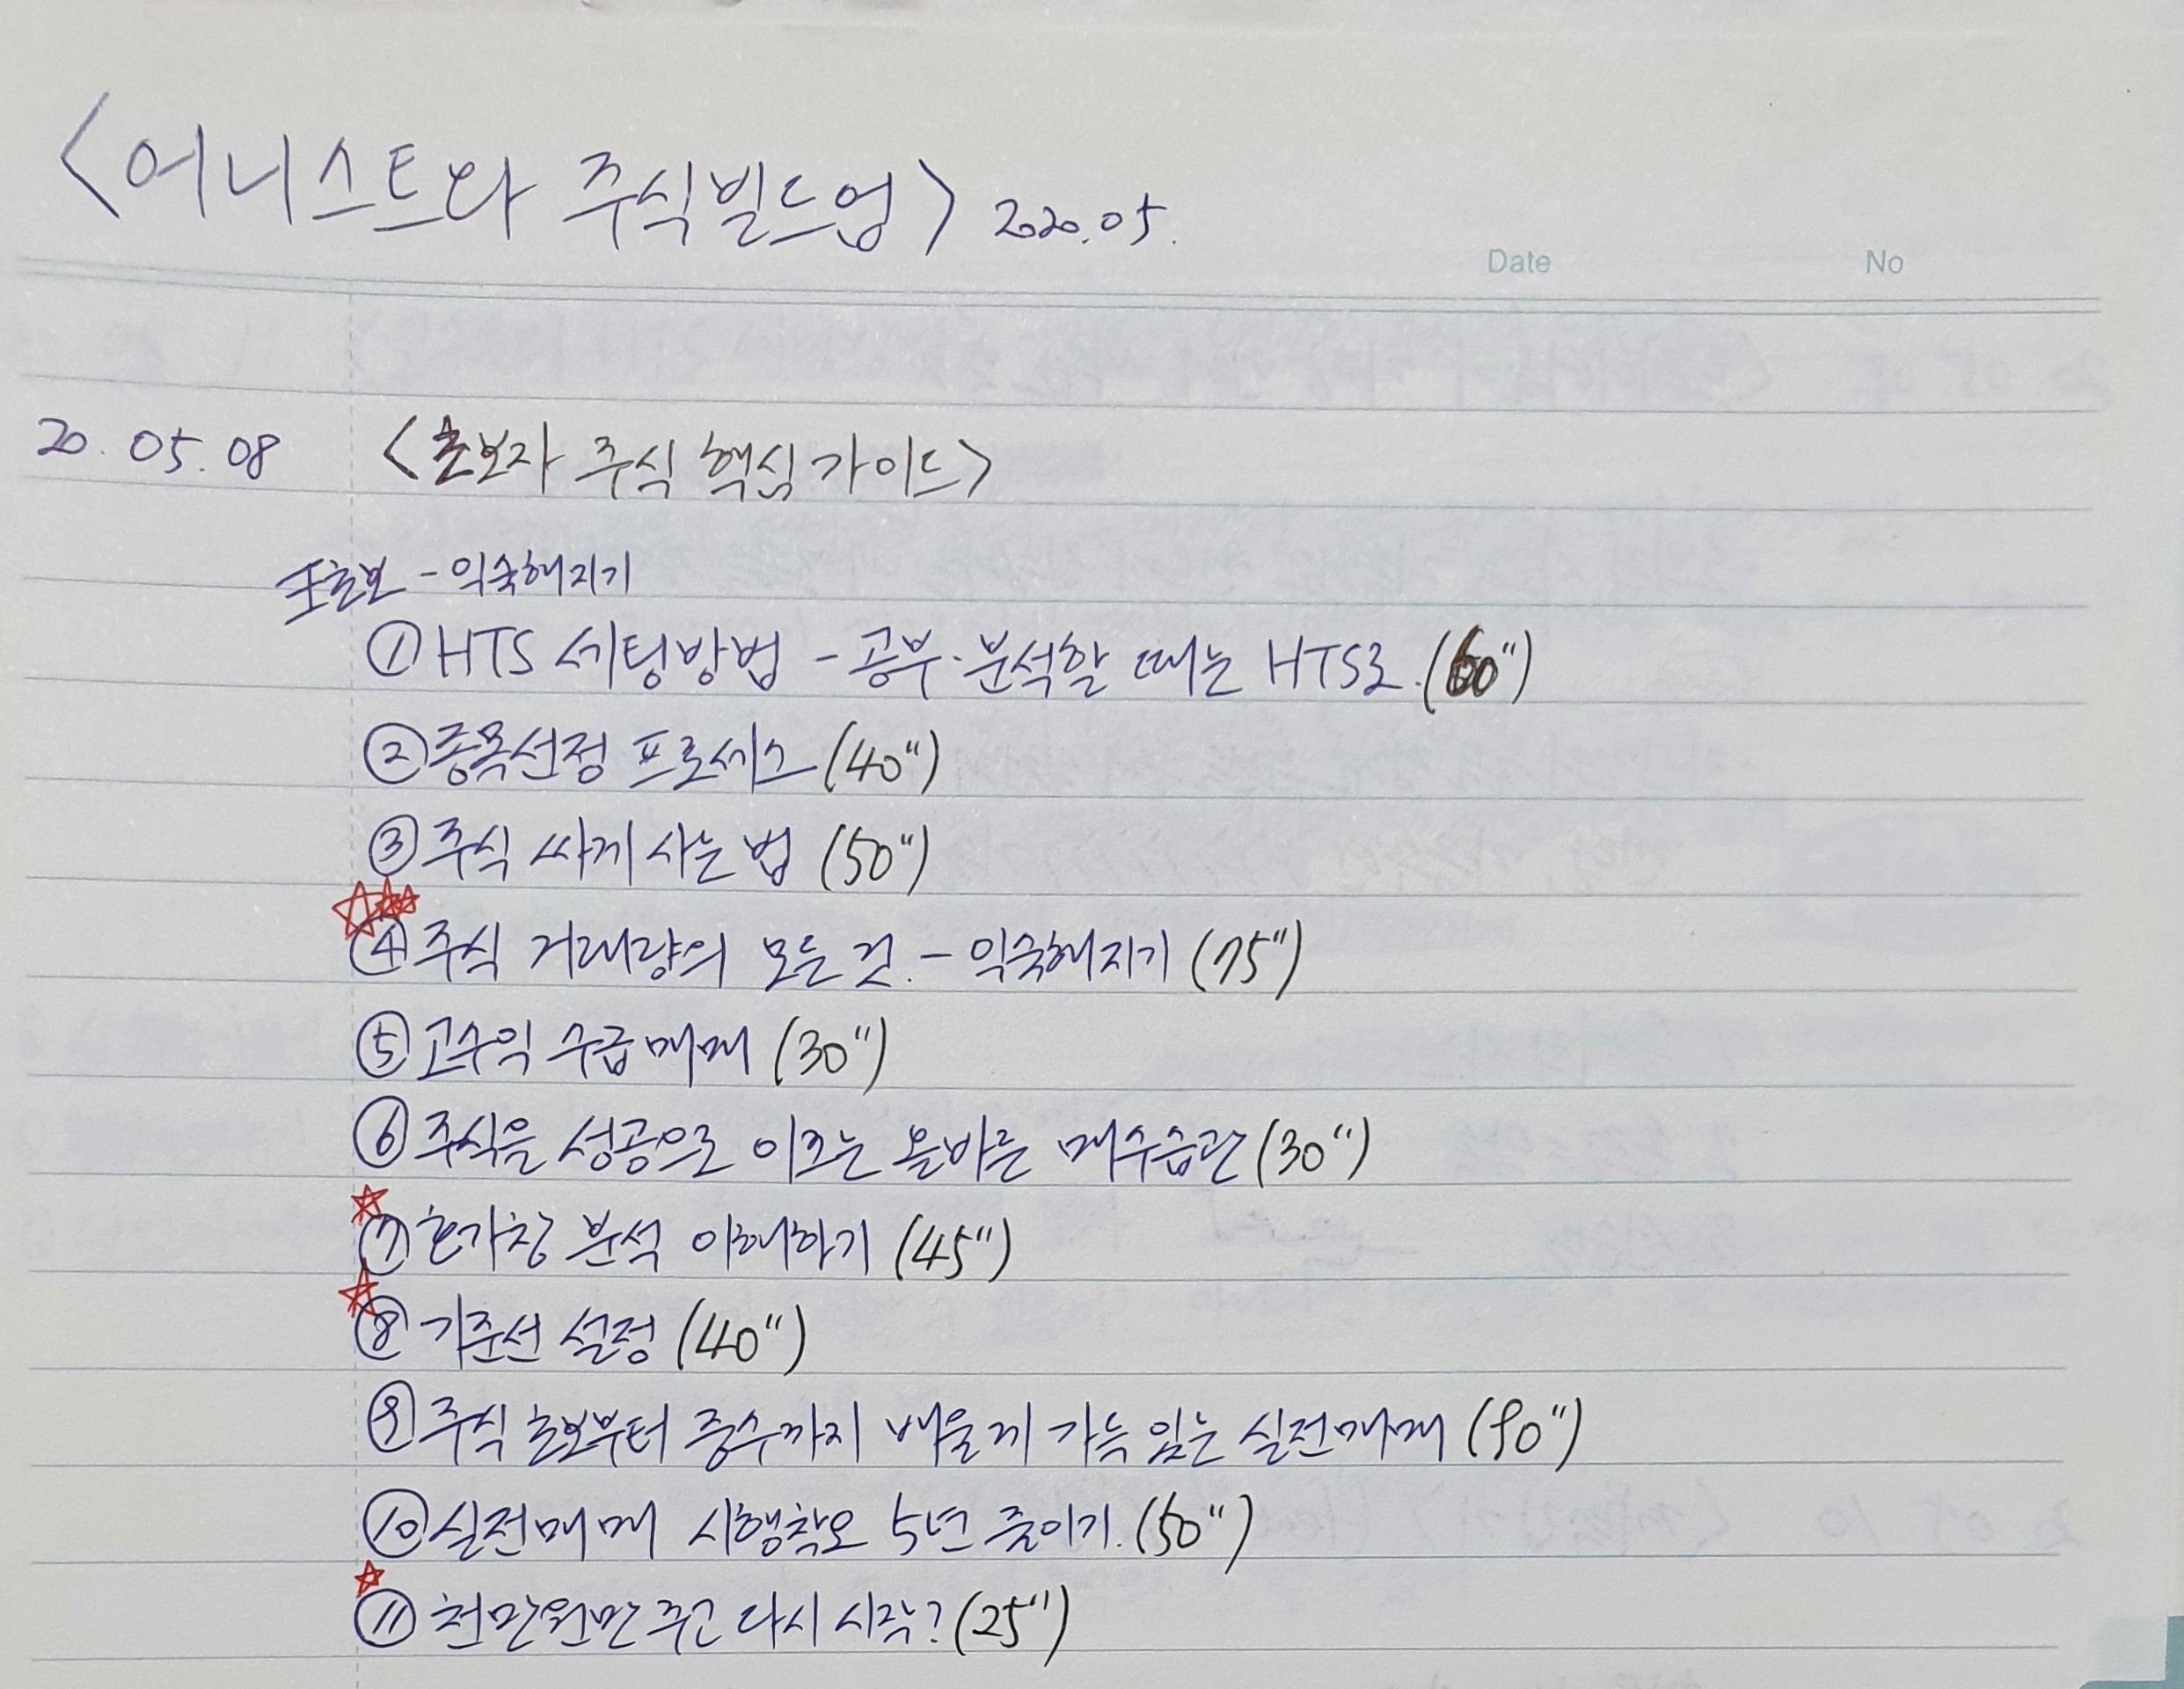 <어니스트와 주식빌드업> 2020.05.
Date No
20.05.08 <초보자 주식 핵심 가이드>
王초보 - 익숙해지기
① HTS 세팅방법 - 공부·분석할 때는 HTS로.(60")
② 종목선정 프로세스 (40")
③ 주식 싸게 사는 법 (50")
☆☆☆
④ 주식 거래량의 모든 것. - 익숙해지기 (75")
⑤ 고수익 수급매매 (30")
⑥ 주식을 성공으로 이끄는 올바른 매수습관 (30")
☆
⑦ 호가창 분석 이해하기 (45")
☆
⑧ 기준선 설정 (40")
⑨ 주식 초보부터 중수까지 배울게 가득 있는 실전매매 (90")
⑩ 실전매매 시행착오 5년 줄이기.(50")
☆
⑪ 천만원만 주고 다시 시작? (25")